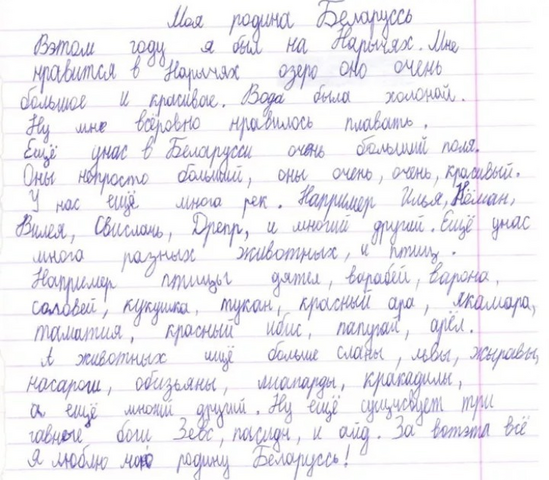 Моя родина Беларуссь
Вэтом году я был на Нарычях. Мне
нравится в Нарычях озеро оно очень
большое и красивае. Вода была холоной.
Ну мне всёровно нравилось плавать.
Ещё унас в Беларусси очень большый поля.
Оны непросто большый, оны очень, очень, красивый.
У нас ещё многа рек. Например Илья, Нёман,
Вилея, Свислочь, Дрепр, и многий другий. Ещё унас
многа разных животных, и птиц.
Например птицы дятел, варабей, варона,
саловей, кукушка, тукан, красный ара, якамара,
таматия, красный ибис, папугай, арёл.
А животных ищё больше сланы, львы, жыравы,
насароги, обизьяны, лиапарды, кракадилы,
а ещё многий другий. Ну ещё сущиствует три
гавные боги Зевс, и аид. За вотэта всё
Я люблю мою родину Беларуссь!